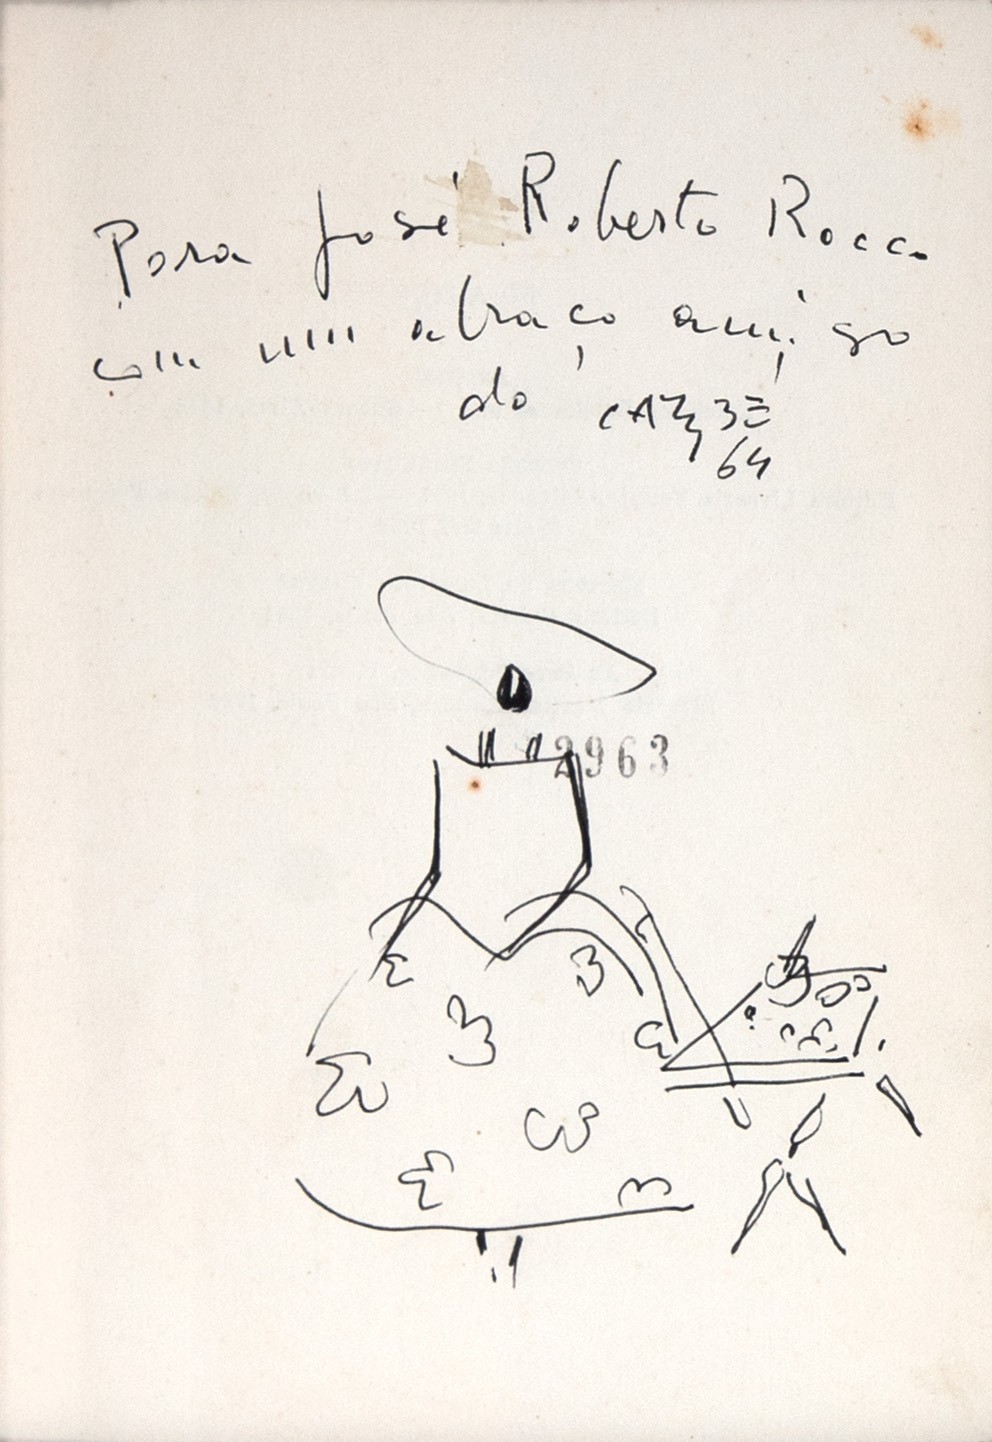 Para José Roberto Rocco
com um abraço amigo
do CARYBÉ
64
2963